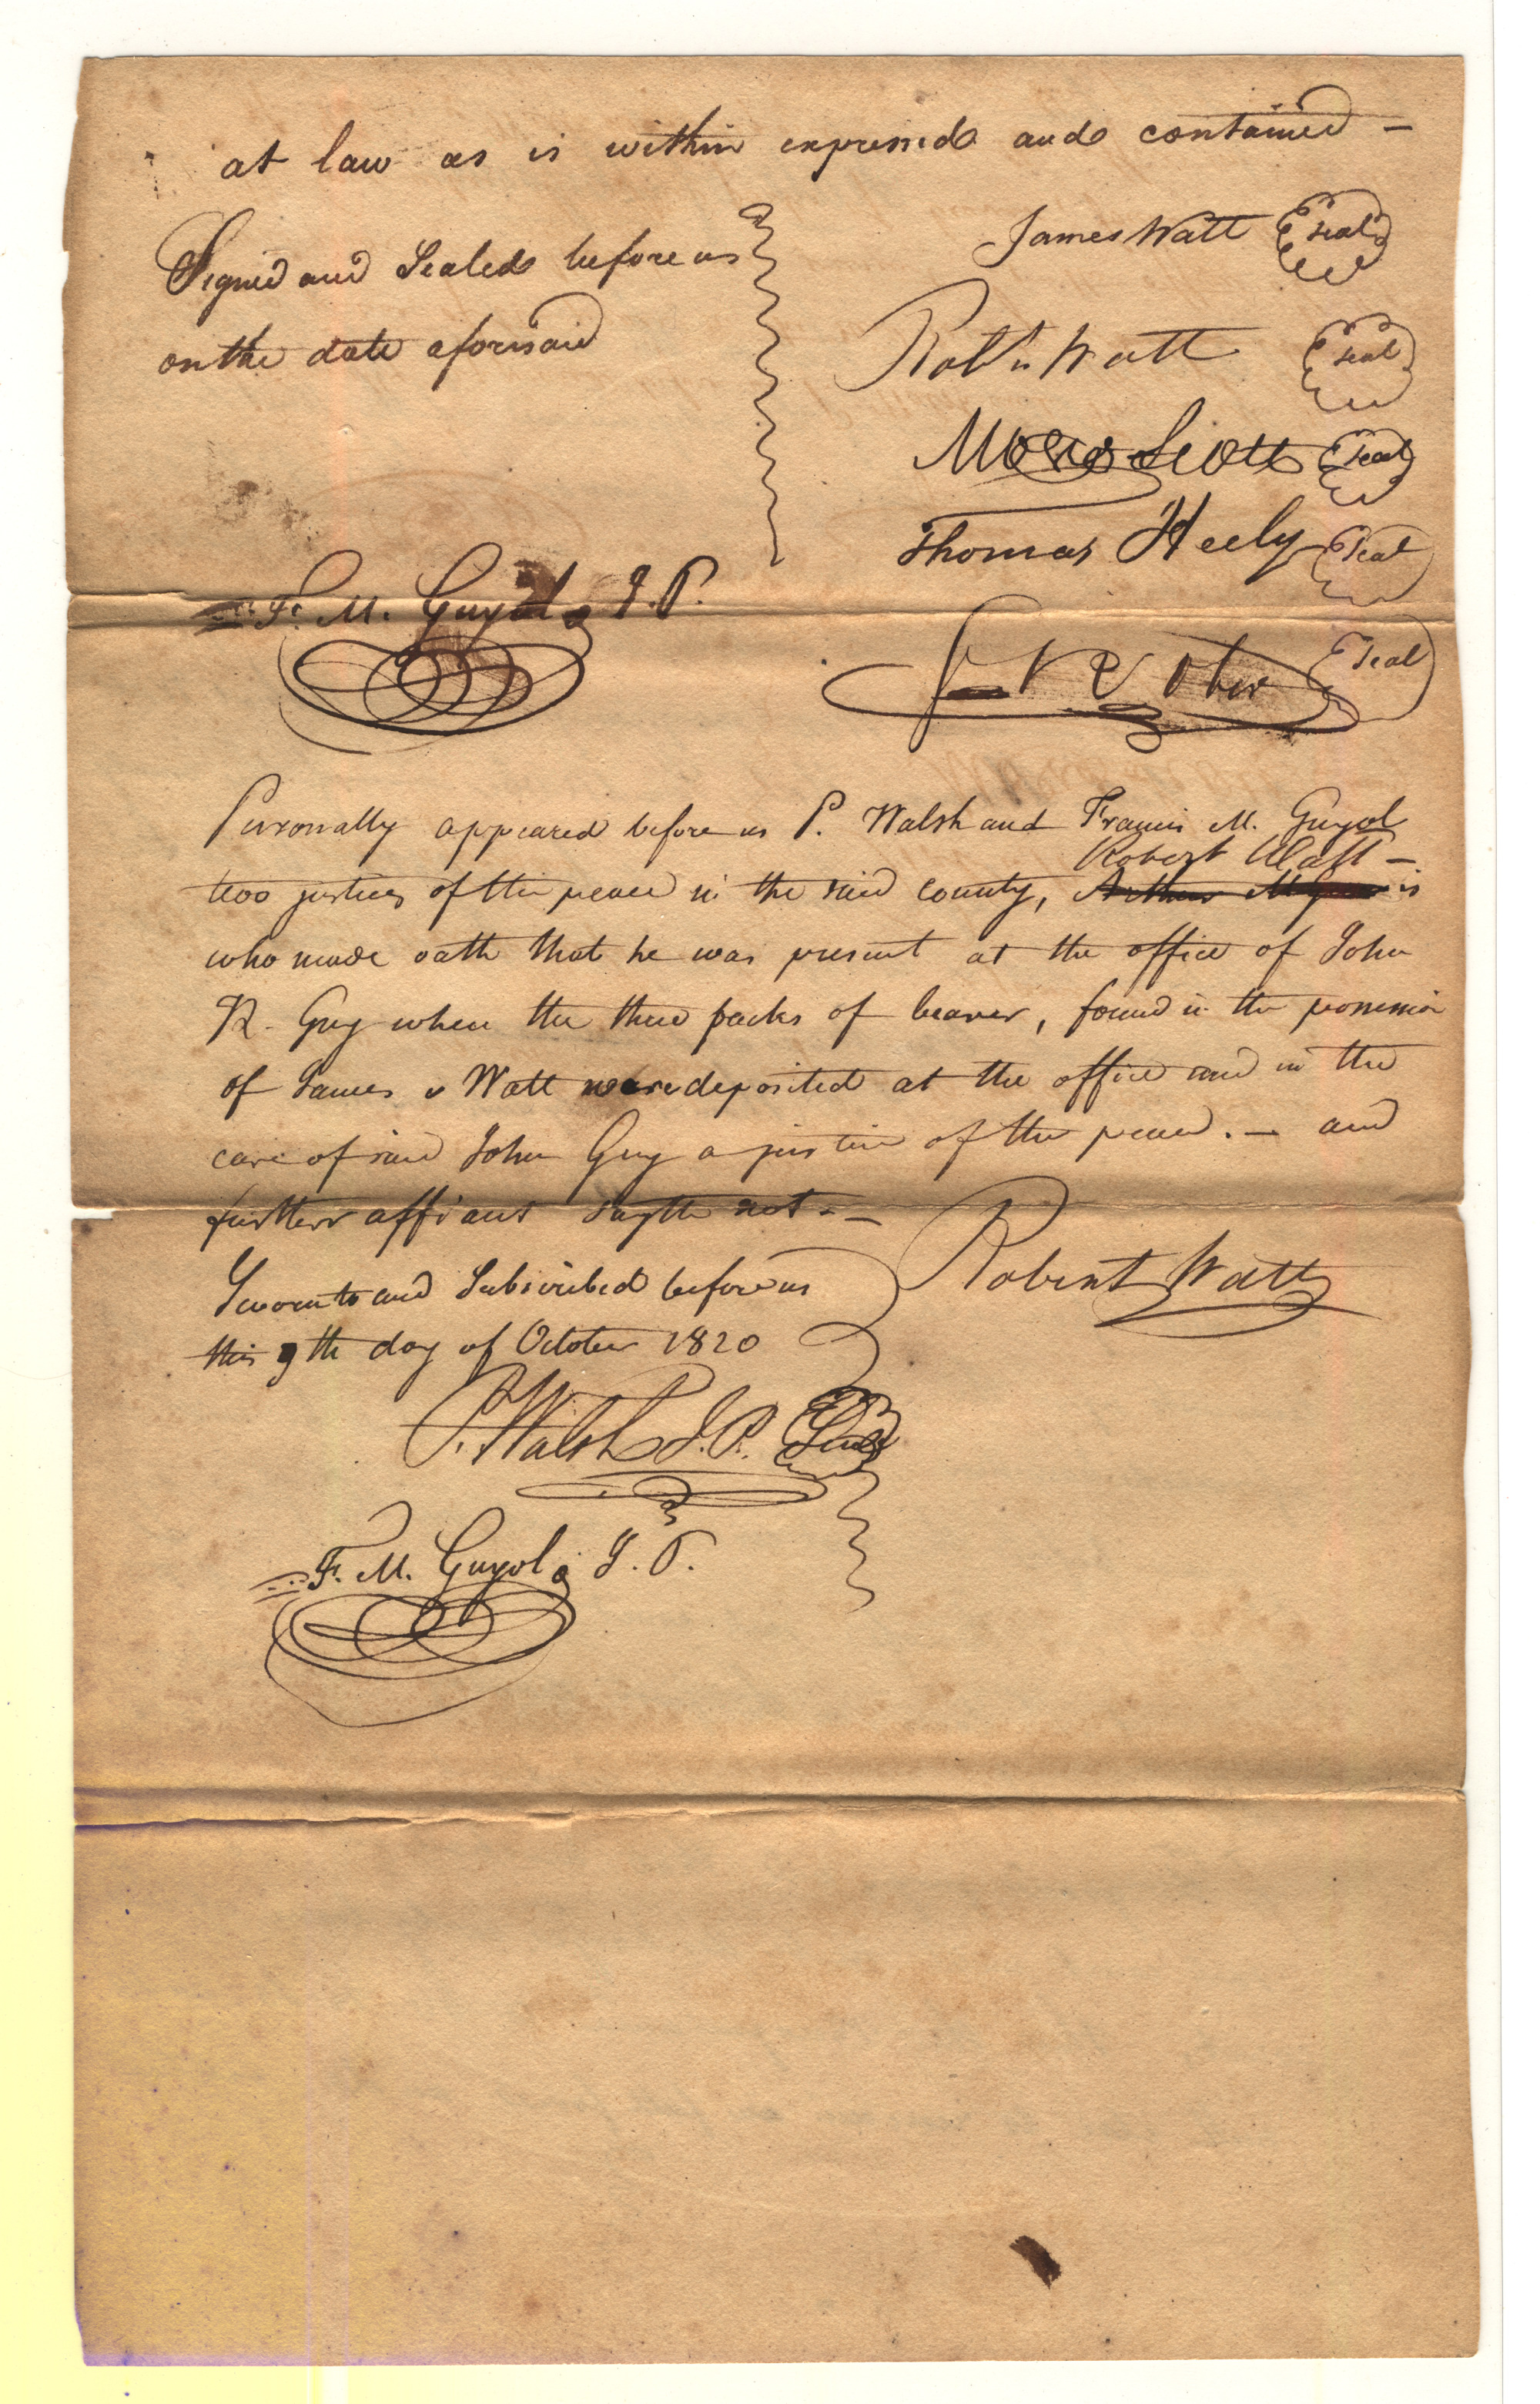 at law as is within expressed and contained —
Signed and Sealed before us
on the date aforesaid
James Watt seal
Robt Watt seal
Moses Scott seal
Thomas Heely seal
F. M. Guyol J. P.
seal
Personally appeared before us P. Walsh and Francis M. Guyol
Robert Watt —
two justices of the peace in the said county,
who made oath that he was present at the office of John
R. Guy when the three packs of beaver, found in the possession
of James Watt were deposited at the office and in the
care of said John Guy a justice of the peace. — and
further affiant sayth not. —
Sworn to and Subscribed before us
this 9th day of October 1820
Robert Watt
P. Walsh J. P. Seal
F. M. Guyol J. P.